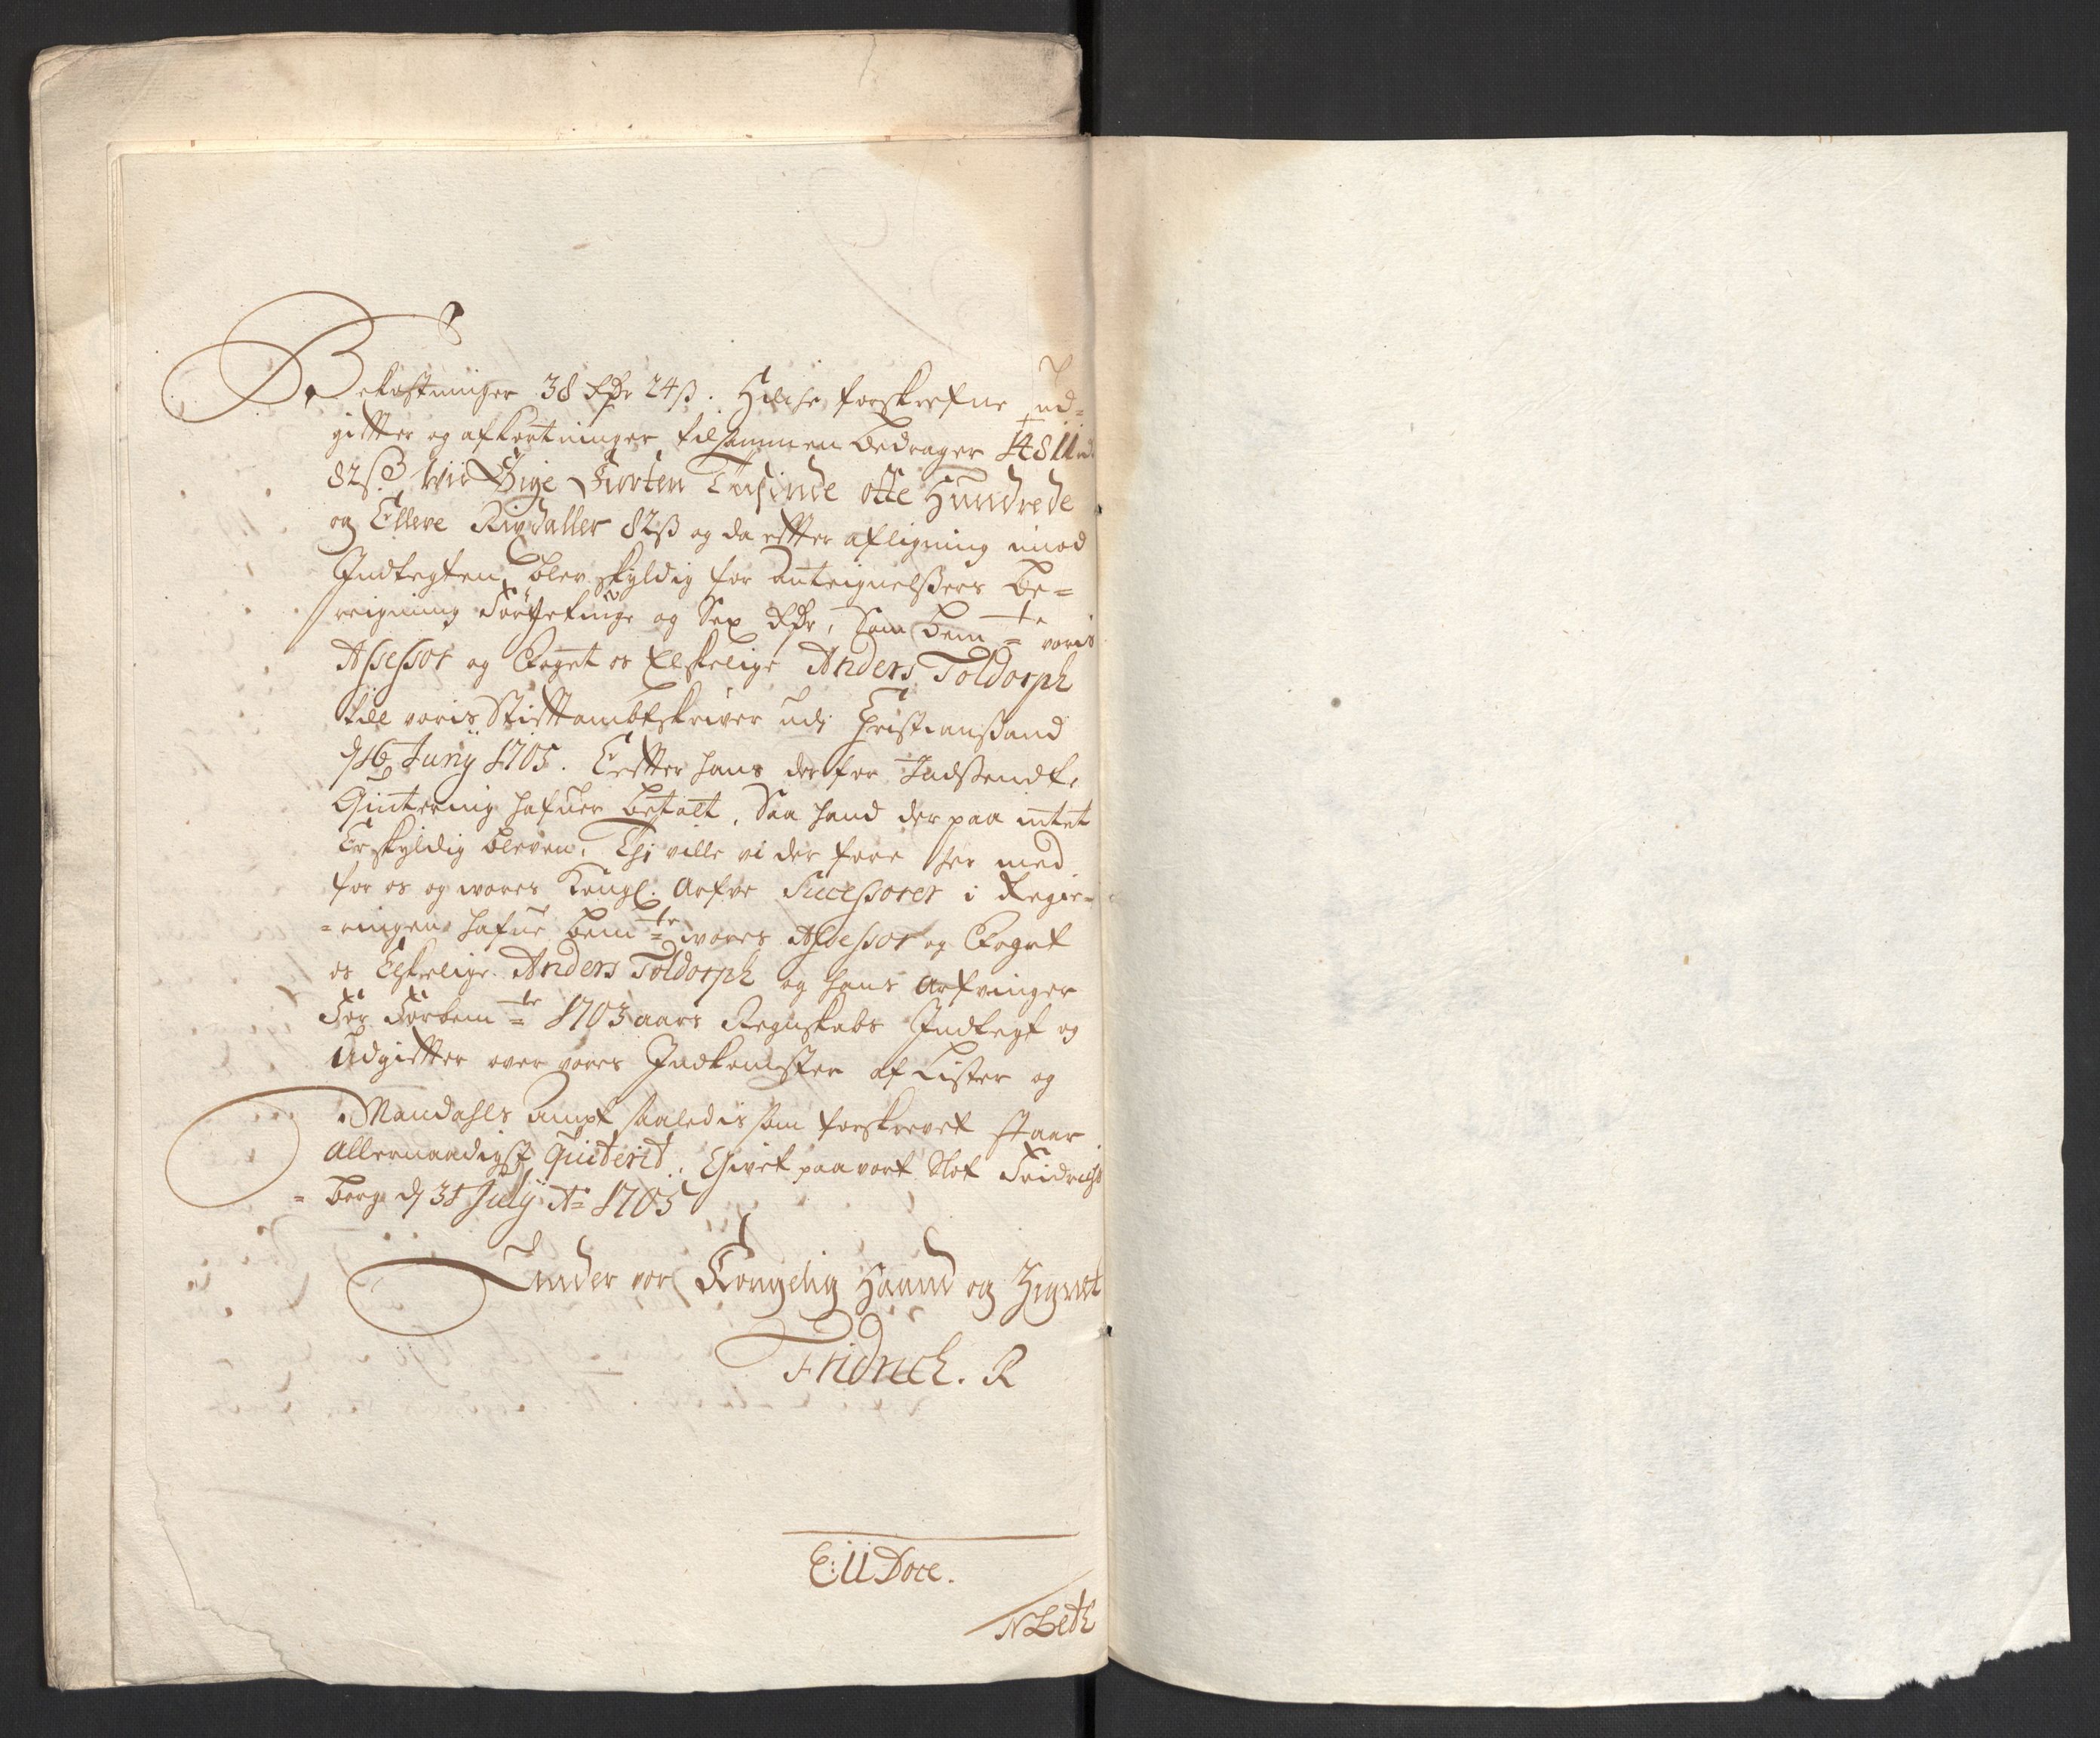 Bekostninger 38 Rdr 24ß. Hvilche forskrefne ud=
gifter og afkortninger tilsammen bedrager 14811 rd
82ß Siger Fiorten Tusinde otte Hundrede
og Elleve Rixdaller 82ß og da efter afligning imod
Indtegten blev skyldig for Anteignelssers be=
reigning Førgetiuge og Sex Rdr, Som bemte voris
Assessor og Foget os Elskelige Anders Toldorph
till voris Stiftambtskriver udj Christianssand
d 16 Junij 1705. Eefter hans derfor Indssendte
Qvitering hafuer betalt, Saa hand der paa intet
Er skyldig bleven, Thj ville vi der fore her med
for os og wores Kongl. Arfve Successorer i Regie=
=ringen hafue bemte wores Assessor og Foget
os Elskelige Anders Toldorph og hans Arfvinger
For Forbemte 1703 aars Regnskabs Indtegt og
Udgifter over vores Indkomster af Lister og
Mandahls Ampt saaledis som forskrevet staar
Allernaadigst Quiterit. Givet paa vort Slot Fridrichs
=berg d 31 July Ao 1705
Under vor Kongelig Haand og Zignet
Fridrich. R
E: U Dose.
N Beth